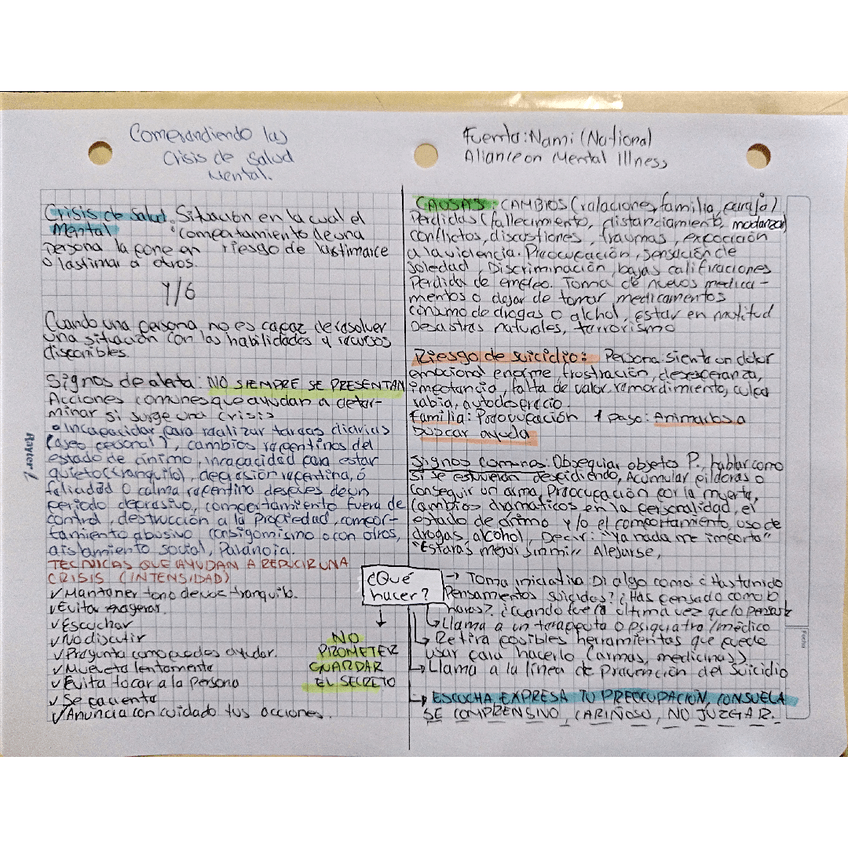 Comprendiendo las
Crisis de Salud
Mental.
Fuente: Nami (National
Aliance on Mental Illness
Crisis de Salud Situación en la cual el
Mental comportamiento de una
persona la pone en riesgo de lastimarce
o lastimar a otros.
Y/o
Cuando una persona no es capaz de resolver
una situación con las habilidades y recursos
disponibles.
Signos de aleta: NO SIEMPRE SE PRESENTAN
Acciones comunes que ayudan a deter-
minar si surge una crisis
o Incapacidar para realizar tareas diarias
(aseo personal), cambios repentinos del
estado de ánimo, incapacidad para estar
quieto (tranquilo), depresión repentina, ó
felicidad o calma repentina despues de un
periodo depresivo, comportamiento fuera de
control, destrucción a la Propiedad, compor-
tamiento abusivo consigo mismo o con otros,
aislamiento social, Paranoia.
TECNICAS QUE AYUDAN A REDUCIR UNA
CRISIS (INTENSIDAD)
✓ Mantener tono de voz tranquilo.
✓ Evita exagerar.
✓ Escuchar
✓ No discutir
✓ Pregunta como puedes ayudar.
✓ Muevete lentamente
✓ Evita tocar a la persona
✓ Se paciente
✓ Anuncia con cuidado tus acciones.
NO
PROMETER
GUARDAR
EL SECRETO
CAUSAS: CAMBIOS (relaciones, familia, pareja)
Perdidas (fallecimiento, distanciamiento, mudanza)
conflictos, discusiones, traumas, exposición
a la violencia. Preocupación, sensación de
soledad, Discriminación, bajas calificaciones
Perdida de empleo. Toma de nuevos medica-
mentos o dejar de tomar medicamentos
consumo de drogas o alchol, estar en multitud
Desastres naturales, terrorismo
Riesgo de suicidio: Persona siente un dolor
emocional enorme, frustración, desesperanza,
impotancia, falta de valor, remordimiento, culpa
rabia, autodesprecio.
Familia: Preocupación 1 paso: Animarlos a
buscar ayuda
Signos comunes: Obsequiar objetos P., hablar como
si se estuvieran despidiendo, Acumular pildoras o
conseguir un arma, Preocupación por la muerte,
Cambios dramaticos en la personalidad, el
estado de ánimo y/o el comportamiento, uso de
drogas, alcohol, Decir: "Ya nada me importa"
"Estaras mejor sin mi" Alejarse,
¿Qué
hacer?
→ Toma iniciativa. Di algo como ¿Has tenido
Pensamientos suicidas? ¿Has pensado como lo
harias? ¿Cuando fue la última vez que lo pensaste
Llama a un terapeuta o psiquiatra/médico
Retira posibles herramientas que puede
usar para hacerlo (armas, medicinas)
Llama a la línea de Prevención del Suicidio
ESCUCHA, EXPRESA TU PREOCUPACIÓN, CONSUELA
SE COMPRENSIVO, CARIÑOSO, NO JUZGAR.
Rayter
Fecha